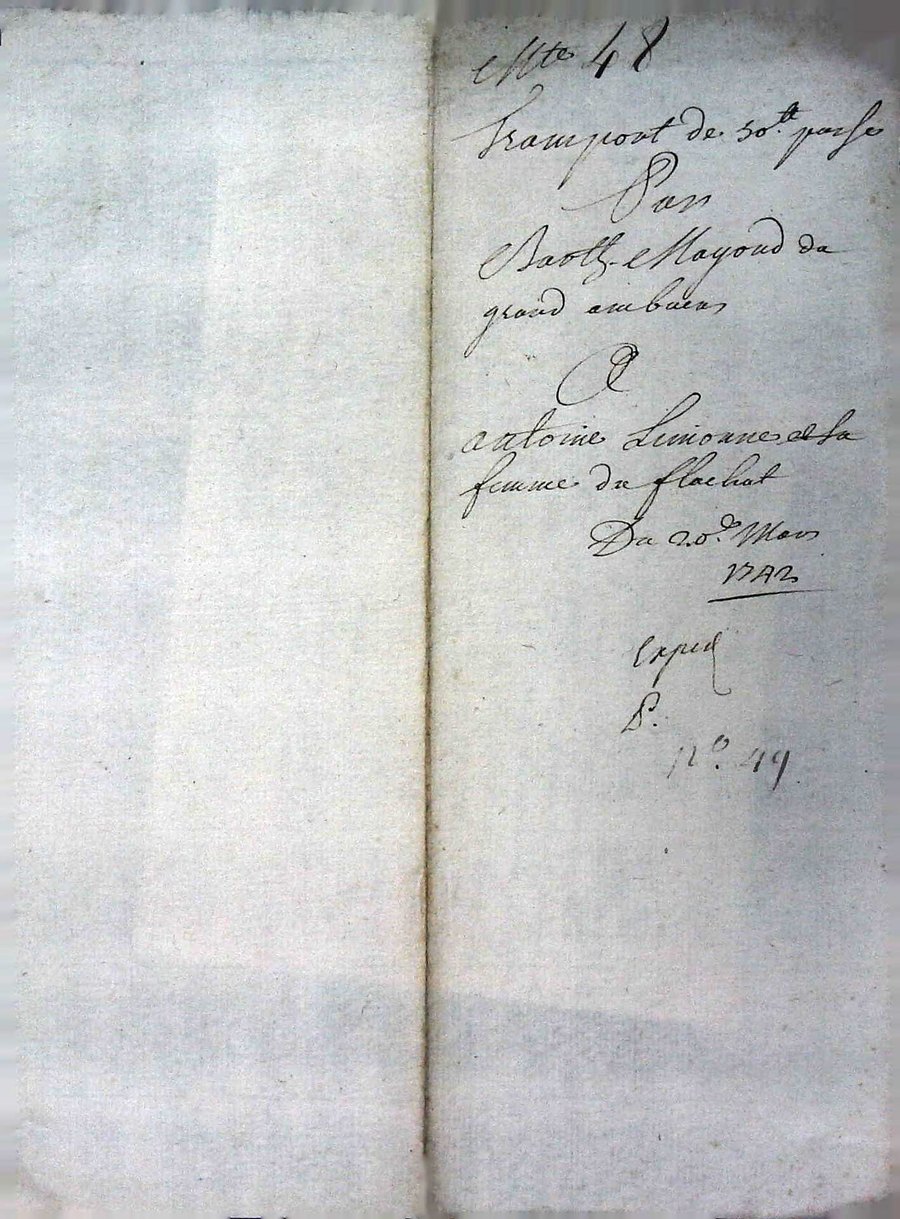 Mte 48
Transport de 50.tt passé
Par
Barth. Mayoud du
grand ambuen
A
antoine Limonne et sa
femme du flachat
Du 20.e Mars
1742
Exped
P.
n.o 49